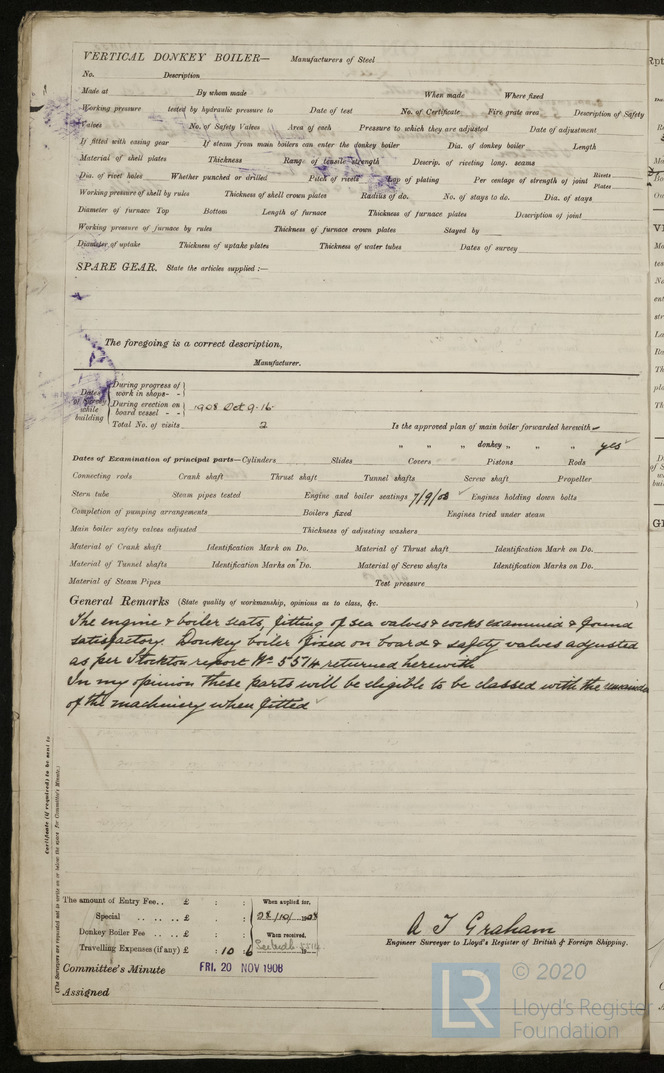 VERTICAL DONKEY BOILER— Manufacturers of Steel
No. Description
Made at By whom made When made Where fixed
Working pressure tested by hydraulic pressure to Date of test No. of Certificate Fire grate area Description of Safety
Valves No. of Safety Valves Area of each Pressure to which they are adjusted Date of adjustment
If fitted with easing gear If steam from main boilers can enter the donkey boiler Dia. of donkey boiler Length
Material of shell plates Thickness Range of tensile strength Descrip. of riveting long. seams
Dia. of rivet holes Whether punched or drilled Pitch of rivets Lap of plating Per centage of strength of joint Rivets Plates
Working pressure of shell by rules Thickness of shell crown plates Radius of do. No. of stays to do. Dia. of stays
Diameter of furnace Top Bottom Length of furnace Thickness of furnace plates Description of joint
Working pressure of furnace by rules Thickness of furnace crown plates Stayed by
Diameter of uptake Thickness of uptake plates Thickness of water tubes Dates of survey
SPARE GEAR. State the articles supplied :—
The foregoing is a correct description,
Manufacturer.
Dates of Survey while building
During progress of work in shops - -
During erection on board vessel - - 1908 Oct 9.16.
Total No. of visits 2 Is the approved plan of main boiler forwarded herewith
„ „ „ donkey „ „ „ yes
Dates of Examination of principal parts—Cylinders Slides Covers Pistons Rods
Connecting rods Crank shaft Thrust shaft Tunnel shafts Screw shaft Propeller
Stern tube Steam pipes tested Engine and boiler seatings 7/9/08 Engines holding down bolts
Completion of pumping arrangements Boilers fixed Engines tried under steam
Main boiler safety valves adjusted Thickness of adjusting washers
Material of Crank shaft Identification Mark on Do. Material of Thrust shaft Identification Mark on Do.
Material of Tunnel shafts Identification Marks on Do. Material of Screw shafts Identification Marks on Do.
Material of Steam Pipes Test pressure
General Remarks (State quality of workmanship, opinions as to class, &c. )
The engine & boiler seats, fitting of sea valves & cocks examined & found
satisfactory. Donkey boiler fixed on board & safety valves adjusted
as per Stockton report No 5514 returned herewith
In my opinion these parts will be eligible to be classed with the remainder
of the machinery when fitted
Certificate (if required) to be sent to
(The Surveyors are requested not to write on or below the space for Committee's Minute.)
The amount of Entry Fee.. £ : : When applied for,
Special .. .. .. £ : : 28/10/ 1908
Donkey Boiler Fee .. .. £ : : When received,
Travelling Expenses (if any) £ : 10 : 6
A T Graham
Engineer Surveyor to Lloyd's Register of British & Foreign Shipping.
Committee's Minute FRI. 20 NOV 1908
Assigned
LR © 2020
Lloyd's Register
Foundation